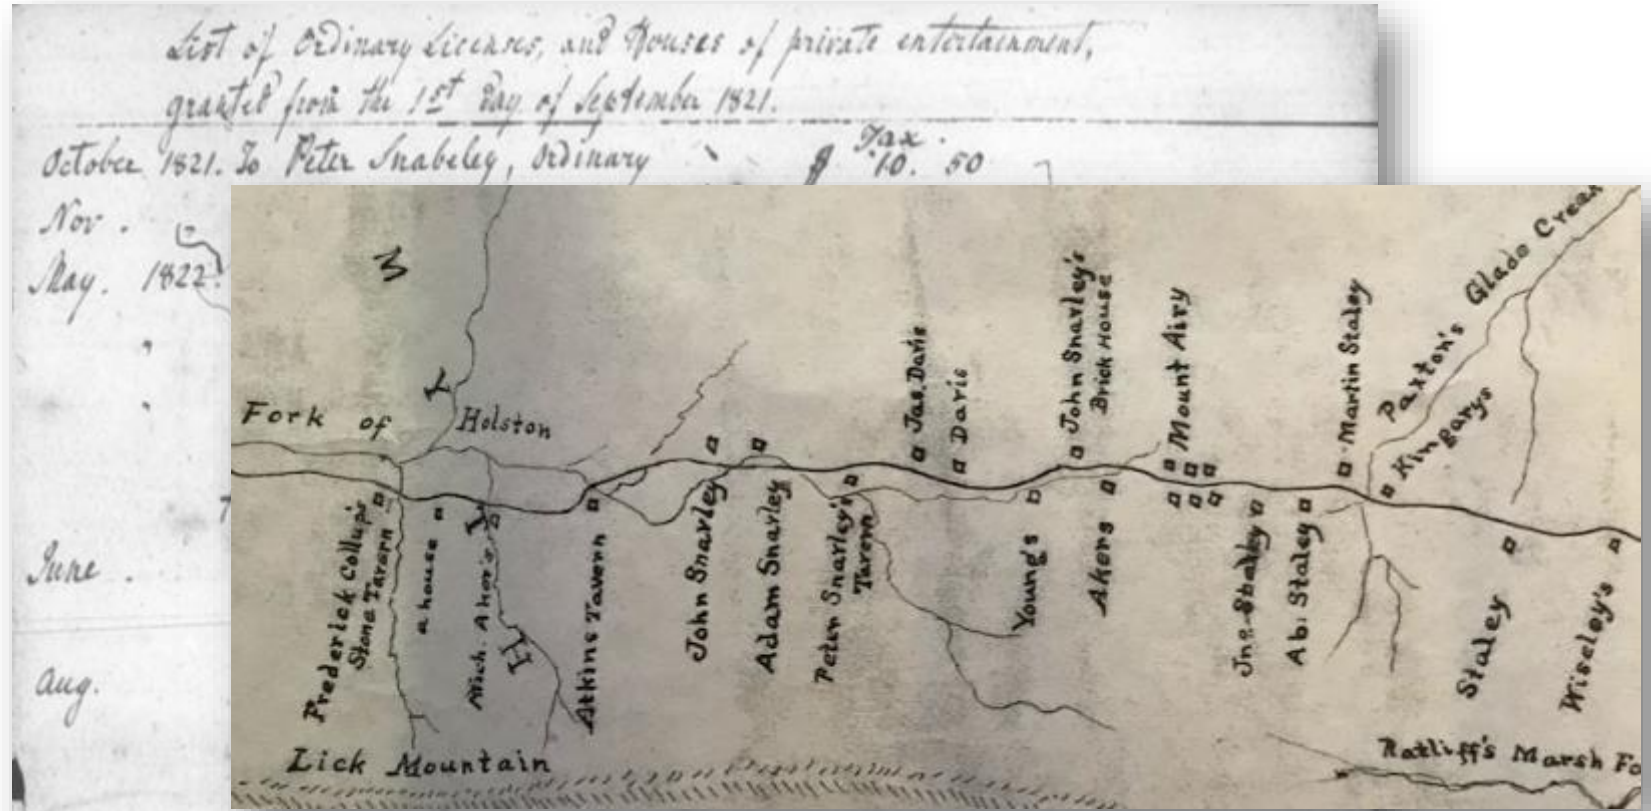 List of Ordinary Licenses, and Houses of private entertainment,
granted from the 1st day of September 1821.
Tax.
October 1821. To Peter Snabeley, Ordinary $ 10. 50
Nov.
May. 1822.
June.
Aug.
W
Y
T
H
Fork of Holston
Frederick Collup's
Stone Tavern
a house
Mich. Aker's
Atkins Tavern
John Snarley
Adam Snarley
Peter Snarley's
Tavern
Jas. Davis
Davis
Young's
John Snarley's
Brick House
Akers
Mount Airy
Jno. Staley
Ab: Staley
Martin Staley
Kingarys
Paxton's Glade Creak
Staley
Wiseley's
Lick Mountain
Ratliff's Marsh Fo